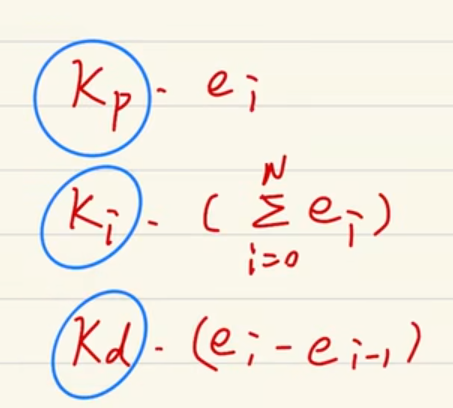 Kp · ei
Ki · ( N Σ i=0 ei )
Kd · (ei - ei-1)